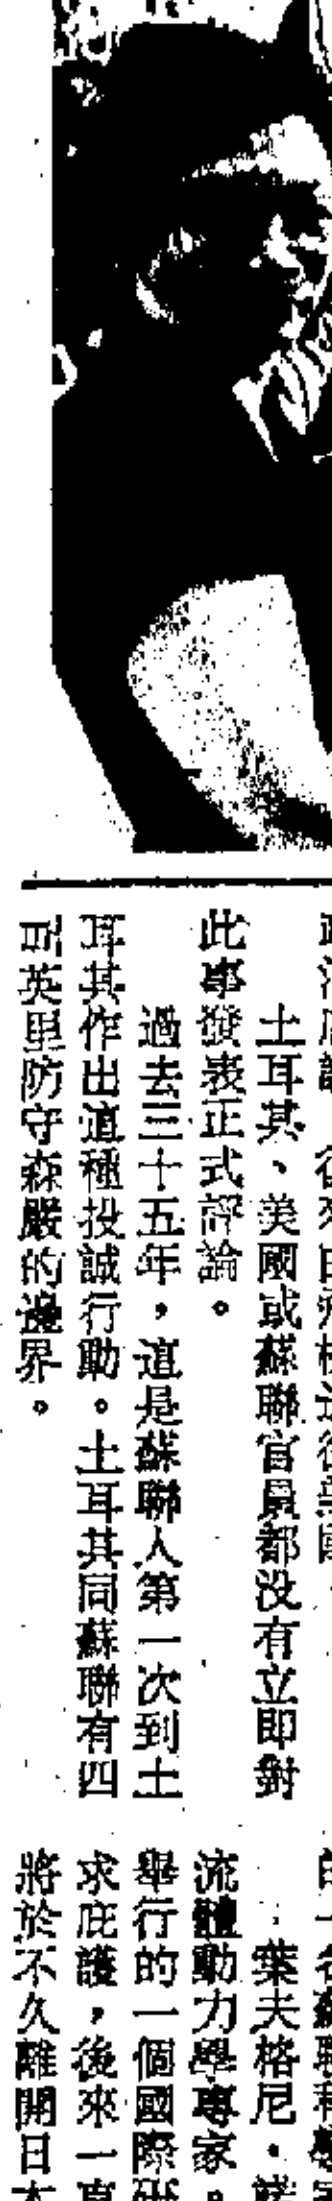 土耳其、美國或蘇聯官員都没有立即對
此事發表正式評論。
過去三十五年，這是蘇聯人第一次到土
耳其作出這種投誠行動。土耳其同蘇聯有四
百英里防守森嚴的邊界。
葉夫格尼・
流體動力學專家。
舉行的一個國際研
求庇護，後來一直
將於不久離開日本